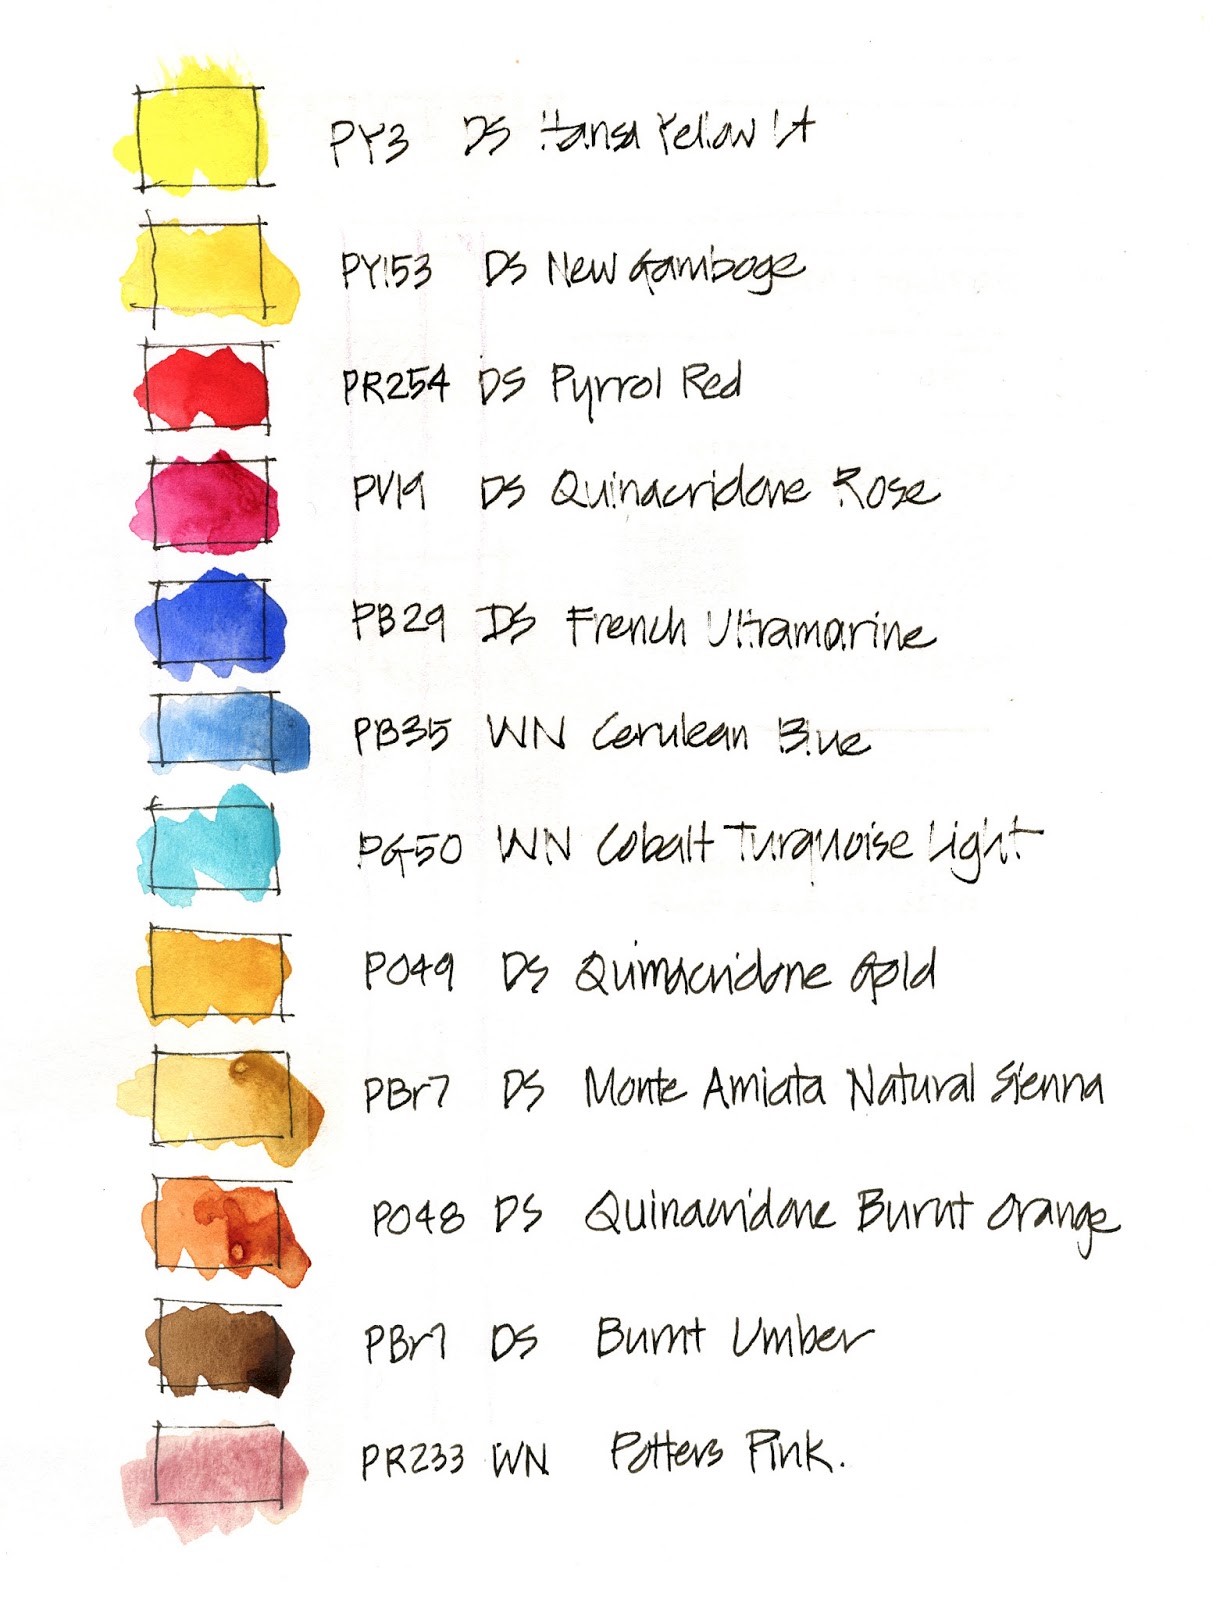 PY3 DS Hansa Yellow Lt
PY153 DS New Gamboge
PR254 DS Pyrrol Red
PV19 DS Quinacridone Rose
PB29 DS French Ultramarine
PB35 WN Cerulean Blue
PG50 WN Cobalt Turquoise Light
PO49 DS Quinacridone Gold
PBr7 DS Monte Amiata Natural Sienna
PO48 DS Quinacridone Burnt Orange
PBr7 DS Burnt Umber
PR233 WN Potters Pink.